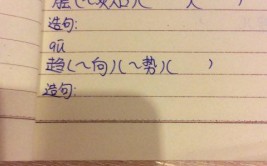 造句:
qū
趋(~向)(~势)( )
造句: